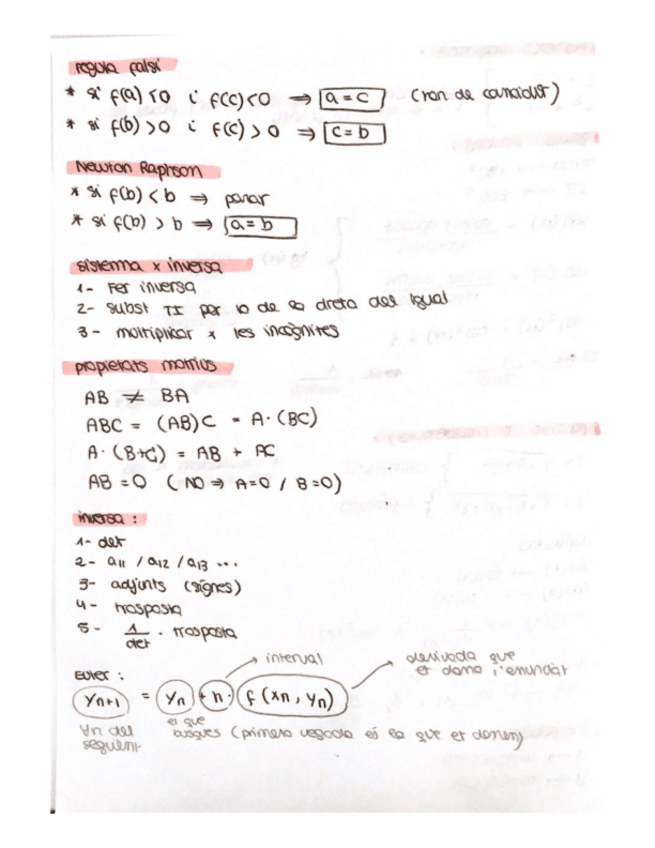 regula falsi
* si f(a) < 0 i f(c) < 0 ⇒ a = c
* si f(b) > 0 i f(c) > 0 ⇒ c = b
Newton Raphson
* si f(b) < b ⇒ parar
* si f(b) > b ⇒ a = b
sistema x inversa
1- Fer inversa
2- subst TI per lo de la dreta del igual
3- multiplicar x les incògnites
propietats matrius
AB ≠ BA
ABC = (AB)C = A·(BC)
A·(B+C) = AB + AC
AB = 0 (NO ⇒ A=0 / B=0)
inversa:
1- det
2- a11 / a12 / a13 ...
3- adjunts (signes)
4- trasposta
5- 1/det · trasposta
interval
derivada que et dona l'enunciat
Euler:
yn+1 = yn + h · f(xn, yn)
Yn del següent
el que busques (primera vegada és la que et donen)